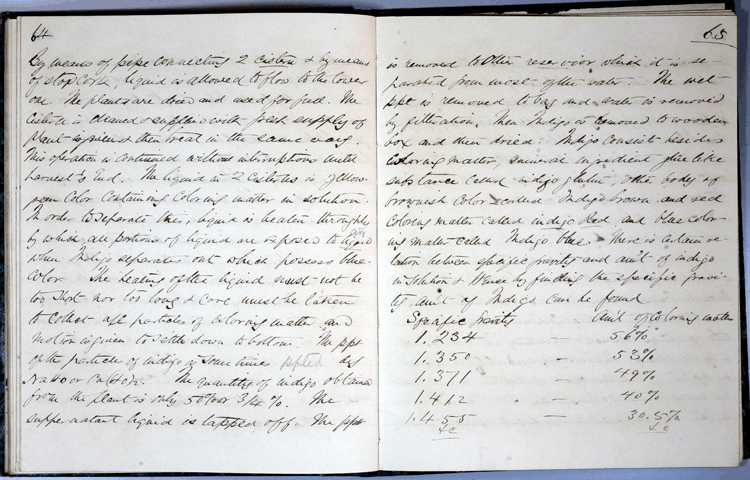 64
By means of pipe connecting 2 cisterns & by means
of stopcork, liquid is allowed to flow to the lower
one. The plants are dried and used for fuel. The
cistern is cleaned & supplied with fresh supply of
plant & and then treat in the same way.
This operation is continued without interruptions until
harvest to End. The liquid in 2 cisterns is yellow-
green color containing coloring matter in solution.
In order to separate this, liquid is beaten throughly
by which all portions of liquid are exposed to air
when Indigo separates out which posseses blue
color. The beating of the liquid must not be
too short nor too long & care must be taken
to collect all particles of coloring matter and
motion is given to settle down to bottom. The ppt
of the particle of indigo is sometimes ppted by
The quantity of indigo obtained
from the plant is only .50% or 3/4%. The
supper natant liquid is tapped off. The ppt
65
is removed to other reservior which it is se-
parated from most of the water. The wet
ppt is removed to bag and water is removed
by filteration. Then Indigo is removed to wooden
box and then dried. Indigo consist besides
coloring matter, mineral ingredient glue like
substance called indigo gluten, other body of
brownish color called Indigo brown and red
coloring matter called indigo Red and blue color-
ing matter called Indigo blue. There is certain re-
lation between specific gravity and am't of indigo
in solution & Hence by finding the specific gravi-
ty am't of Indigo can be found
Specific gravity Am't of coloring matter
1.234 — 56%
1.350 — 53%
1.371 — 49%
1.412 — 40%
1.455 — 30.5%
&c &c